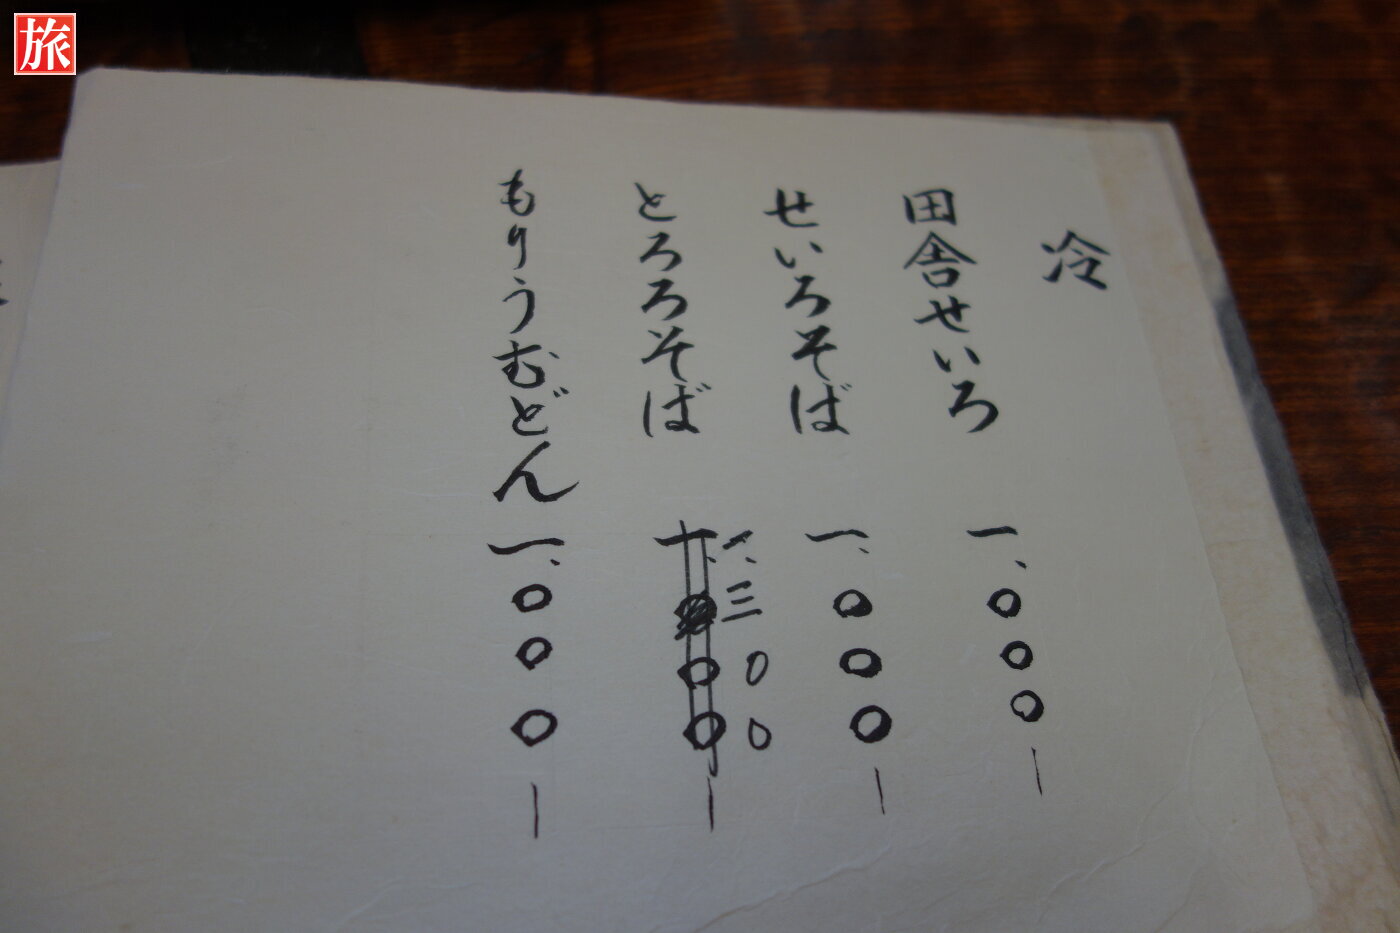 旅
冷
田舎せいろ 一、〇〇〇ー
せいろそば 一、〇〇〇ー
とろろそば 一、三〇〇ー
もりうむどん 一、〇〇〇ー